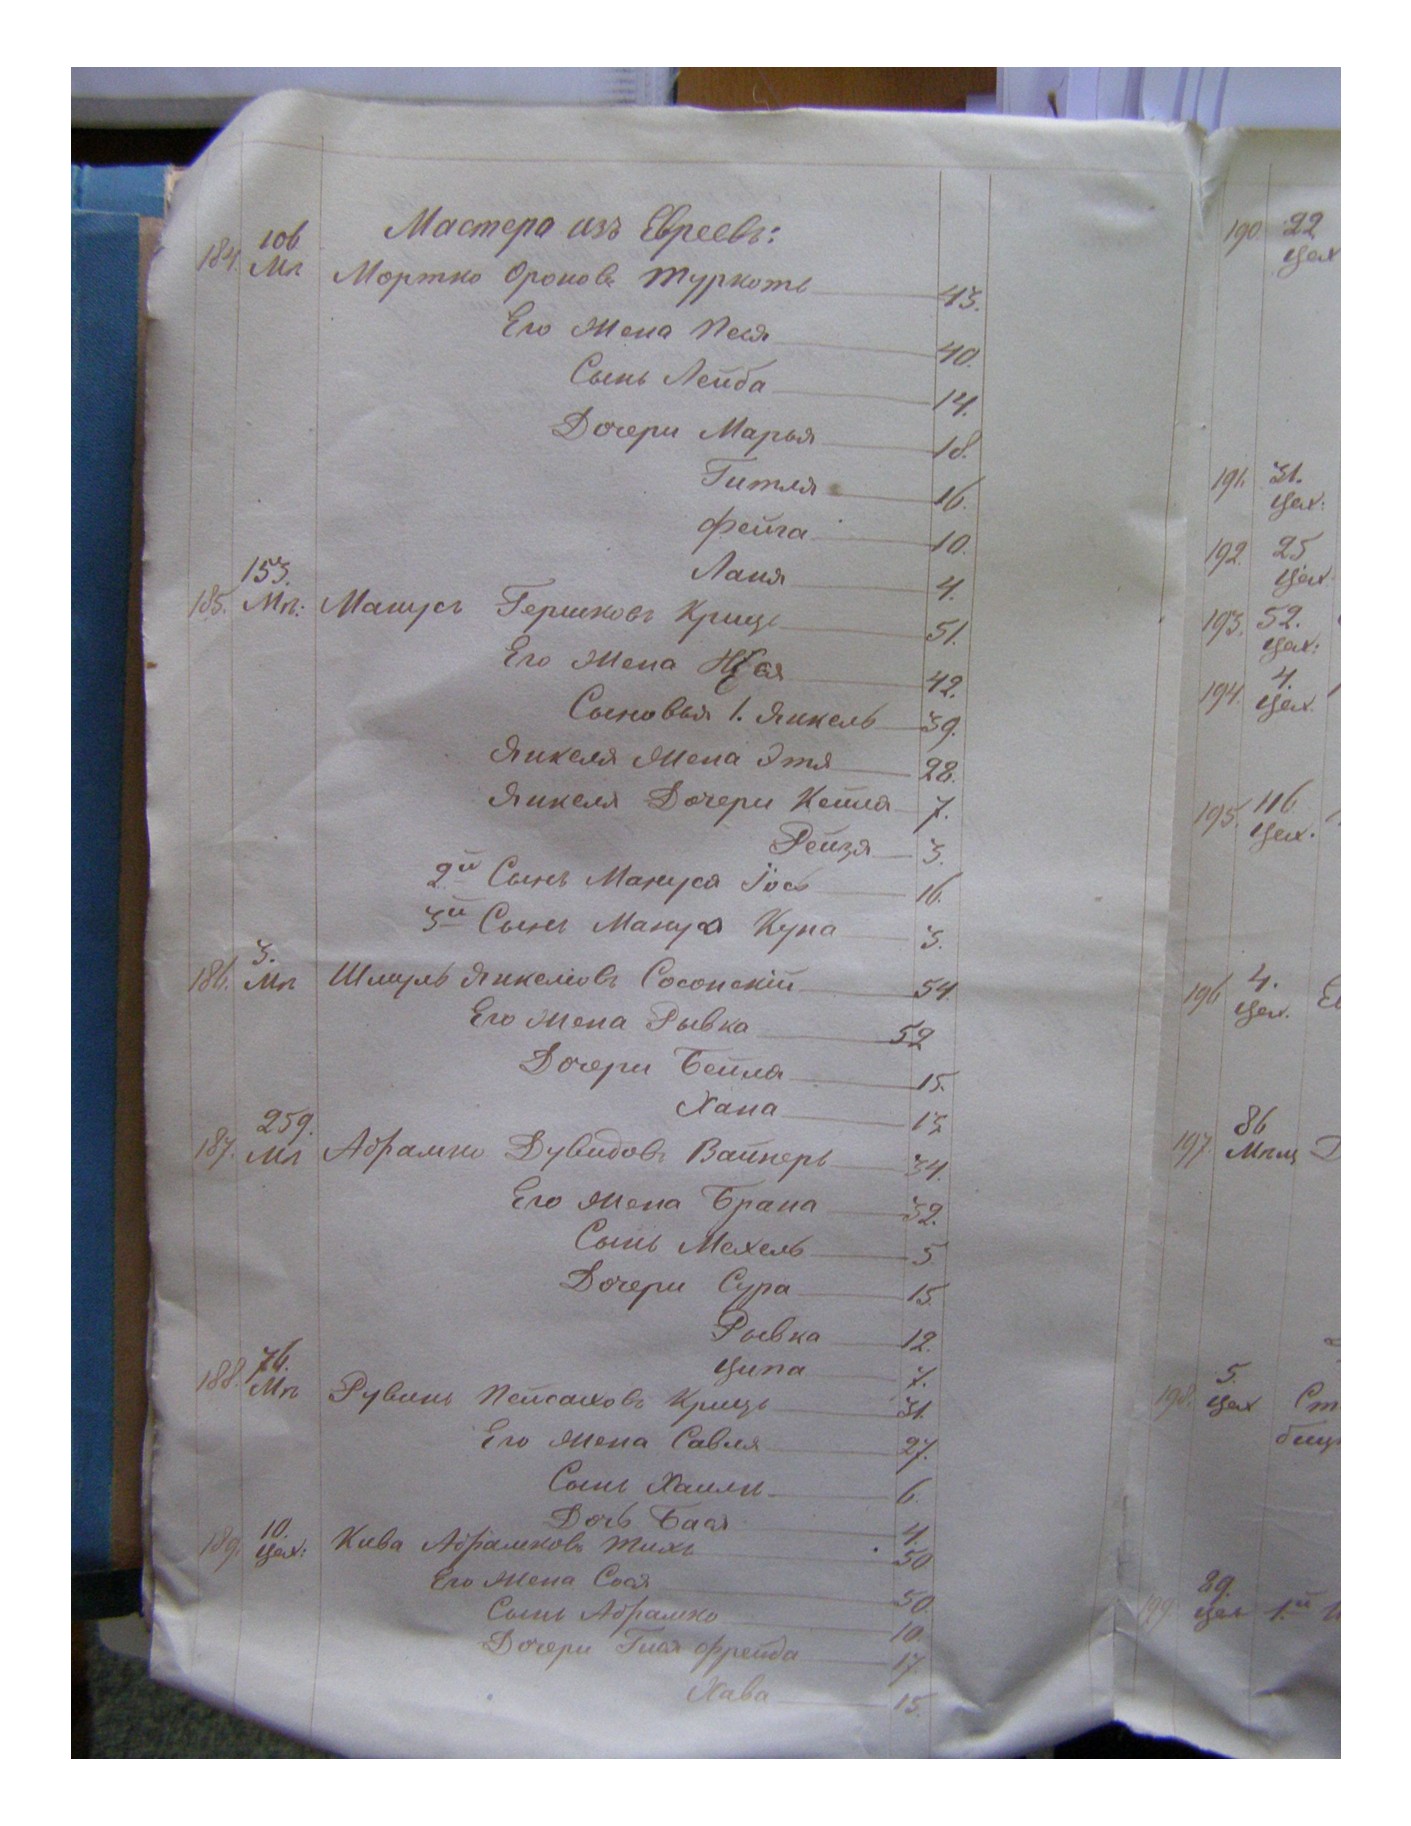 Мастера изъ Евреевъ:
184. 106 Мп Мортко Ороновъ Туркотъ 43.
Его Жена Песя 40.
Сынъ Лейба 14.
Дочери Марья 18.
Гитля 16.
Фейга 10.
Ланя 4.
185. 153. Мп: Манусъ Гершковъ Крицъ 51.
Его Жена 42.
Сыновья 1. Янкель 39.
Янкеля Жена Этя 28.
Янкеля Дочери Кейла 7.
Рейзя 3.
2й Сынъ Мануся Іось 16.
3й Сынъ Мануся Купа 3.
186. 3. Мп Шмуль Янкелiовъ Сосонскій 54
Его Жена Рывка 52
Дочери Бейла 15.
Хана 13
187. 259. Мп Абрамко Дувидовъ Вайнеръ 34.
Его Жена Брана 32.
Сынъ Мехель 5
Дочери Сура 15
Рывка 12.
Ципа 7.
188. 76. Мп Рувинъ Пейсаховъ Крицъ 31.
Его Жена Савля 27.
Сынъ Хаимъ 6.
Дочь Бася 4.
189. 10. Цех: Кива Абрамковъ Тихъ 50
Его Жена Сося 50.
Сынъ Абрамко 10.
Дочери Гися Фрейда 17.
Хава 15.
190. 22 Цех
191. 31. Цех:
192. 25 Цех
193. 52. Цех:
194. 4. Цех.
195. 116. Цех.
196 4. Цех.
197. 86 Мпщ
198. 5. Цех Ст
199. 89. Цех 1.й